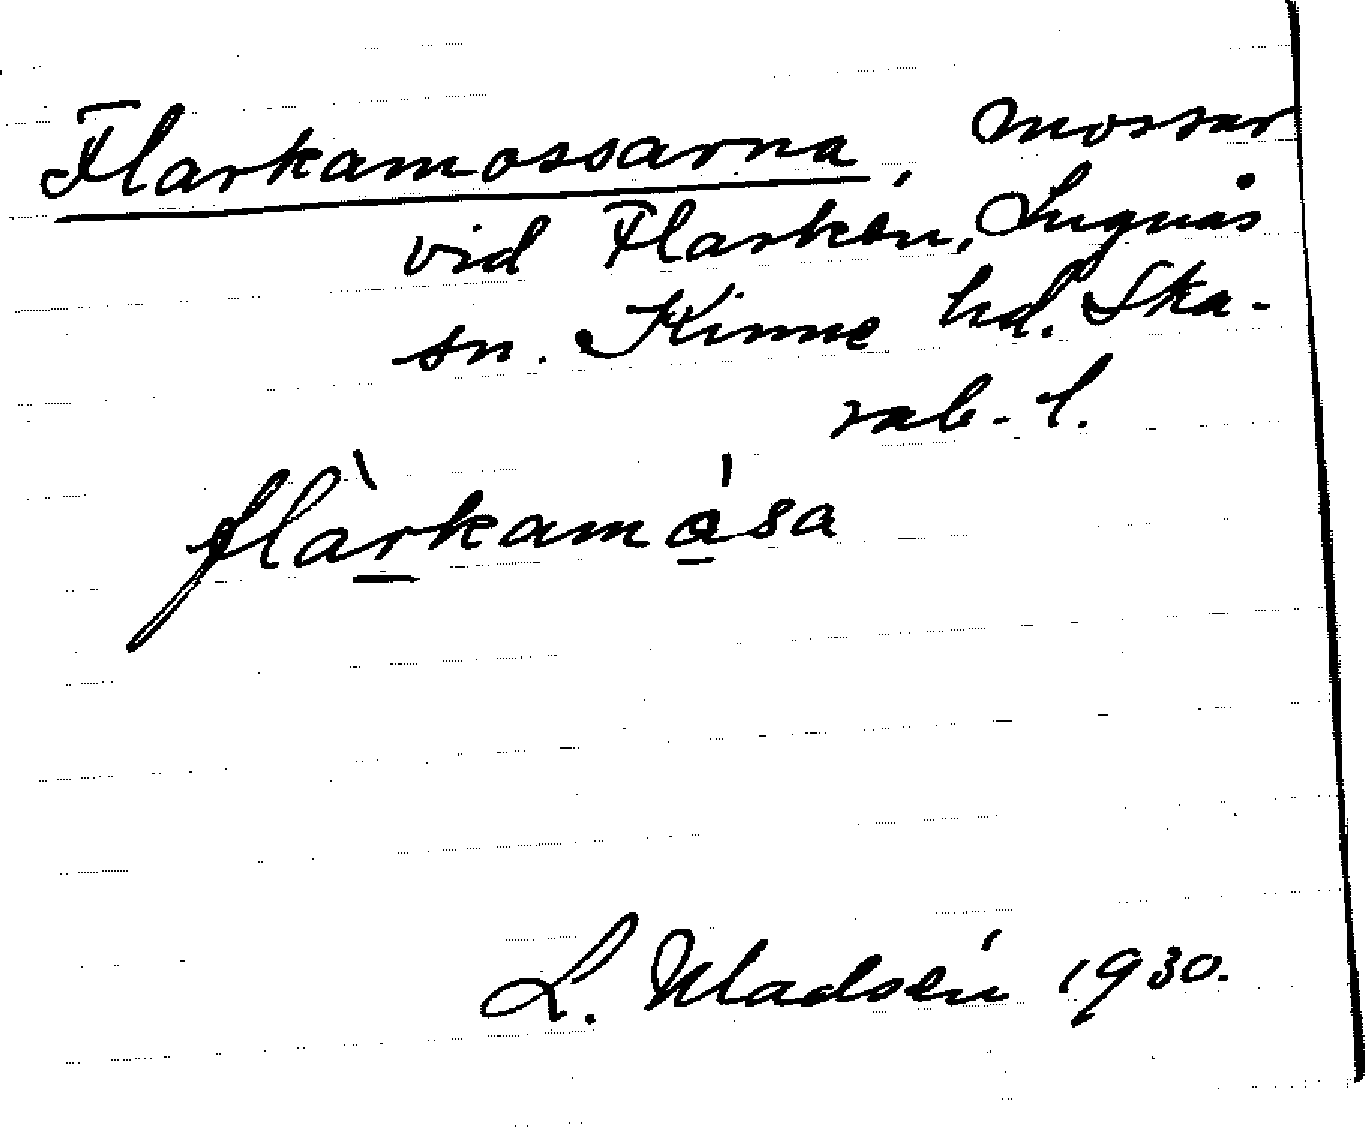 Flarkamossarna, mossar
vid Flarken, Lugnås
sn. Kinne hd. Ska-
rab. l.
flàrkamåsa
L. Madsén 1930.